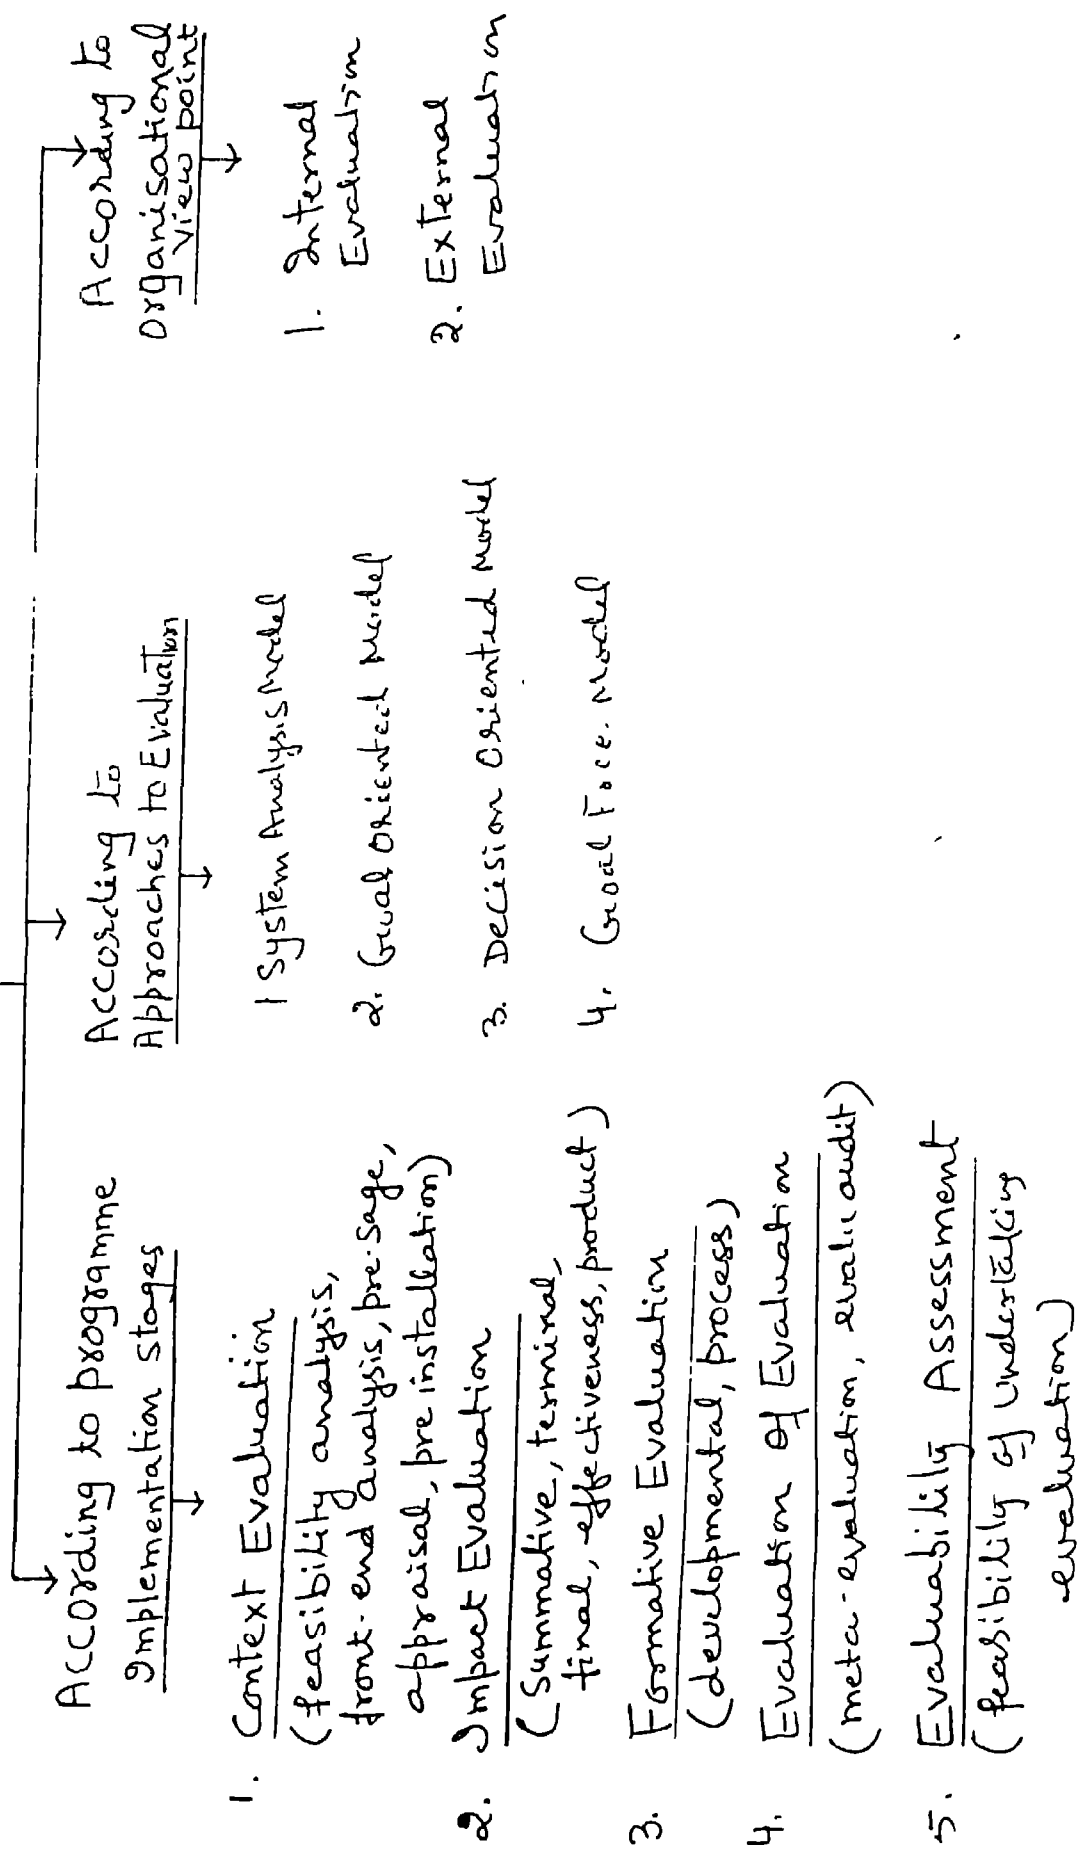 According to programme
Implementation stages
1. Context Evaluation
(feasibility analysis,
front-end analysis, pre-sage,
appraisal, pre installation)
2. Impact Evaluation
(Summative, terminal,
final, effectiveness, product)
3. Formative Evaluation
(developmental, process)
4. Evaluation of Evaluation
(meta-evaluation, evalu audit)
5. Evaluability Assessment
(feasibility of undertaking
evaluation)
According to
Approaches to Evaluation
1 System Analysis Model
2. Goal Oriented Model
3. Decision Oriented Model
4. Goal Free Model
According to
Organisational
View point
1. Internal
Evaluation
2. External
Evaluation